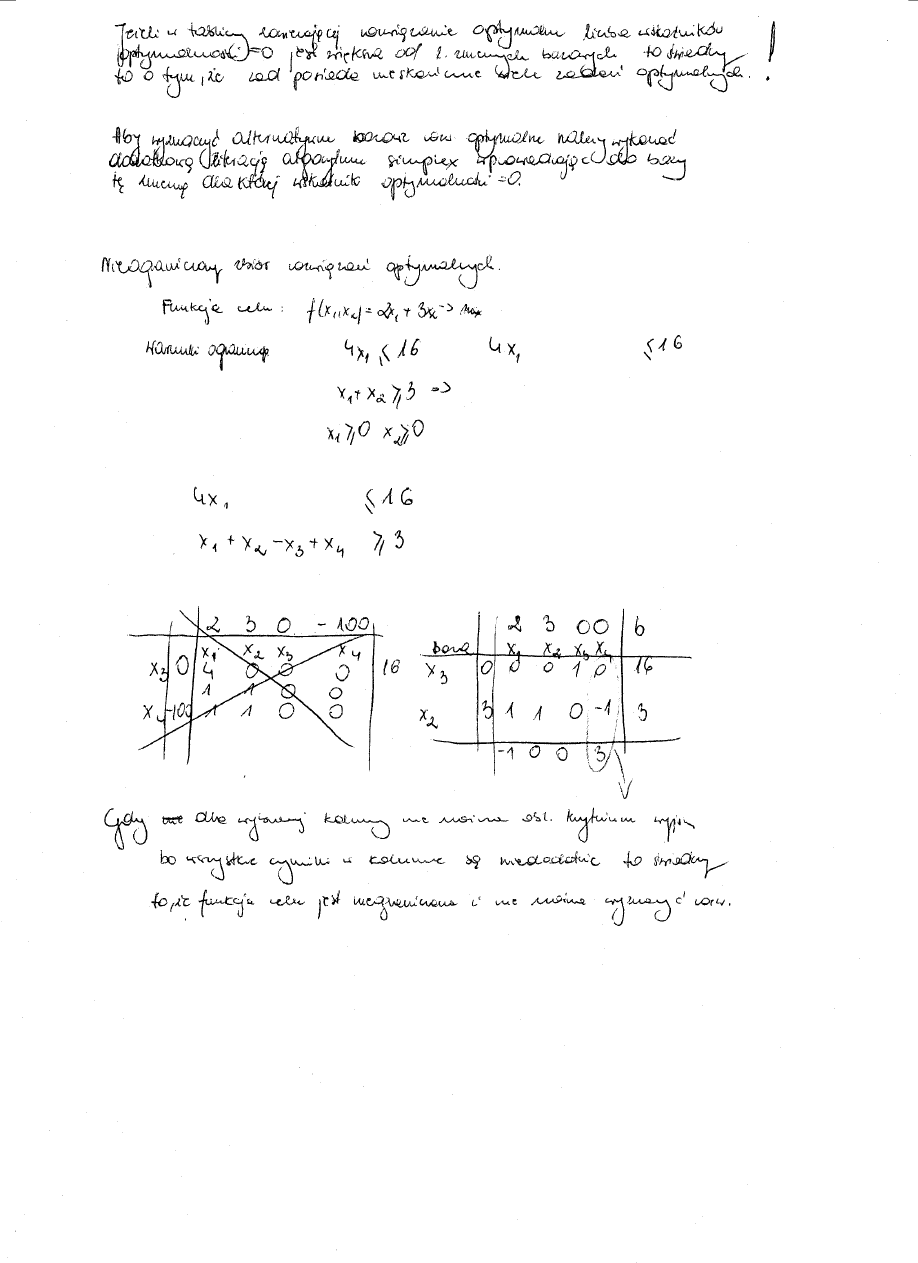 Jeżeli w tablicy zawierającej rozwiązanie optymalne liczba wskaźników
optymalności =0 jest większa od l. zmiennych bazowych to świadczy
to o tym, że zad posiada nieskończenie wiele zadań optymalnych. !
Aby wyznaczyć alternatywne bazowe rozw optymalne należy wykonać
dodatkową iterację algorytmu simplex wprowadzając do bazy
tę zmienną dla której wskaźnik optymalności =0.
Nieograniczony zbiór rozwiązań optymalnych.
Funkcja celu: f(x₁,x₂)=2x₁+3x₂ -> max
Warunki ogranicz 4x₁ ≤ 16 4x₁ ≤ 16
x₁+x₂ ≥ 3 =>
x₁≥0 x₂≥0
4x₁ ≤ 16
x₁ + x₂ - x₃ + x₄ ≥ 3
2 3 0 -100
x₁ x₂ x₃ x₄
x₃ 0 4 0 0 0 16
1 1 0 0
x₄ -100 1 1 0 0
2 3 0 0 b
baza x₁ x₂ x₃ x₄
x₃ 0 0 0 1 0 16
x₂ 3 1 1 0 -1 3
-1 0 0 3
Gdy dla wybranej kolumny nie można okr. kryterium wyjśc
bo wszystkie czynniki w kolumnie są niedodatnie to świadczy
to, że funkcja celu jest nieograniczona i nie można wyznaczyć rozw.